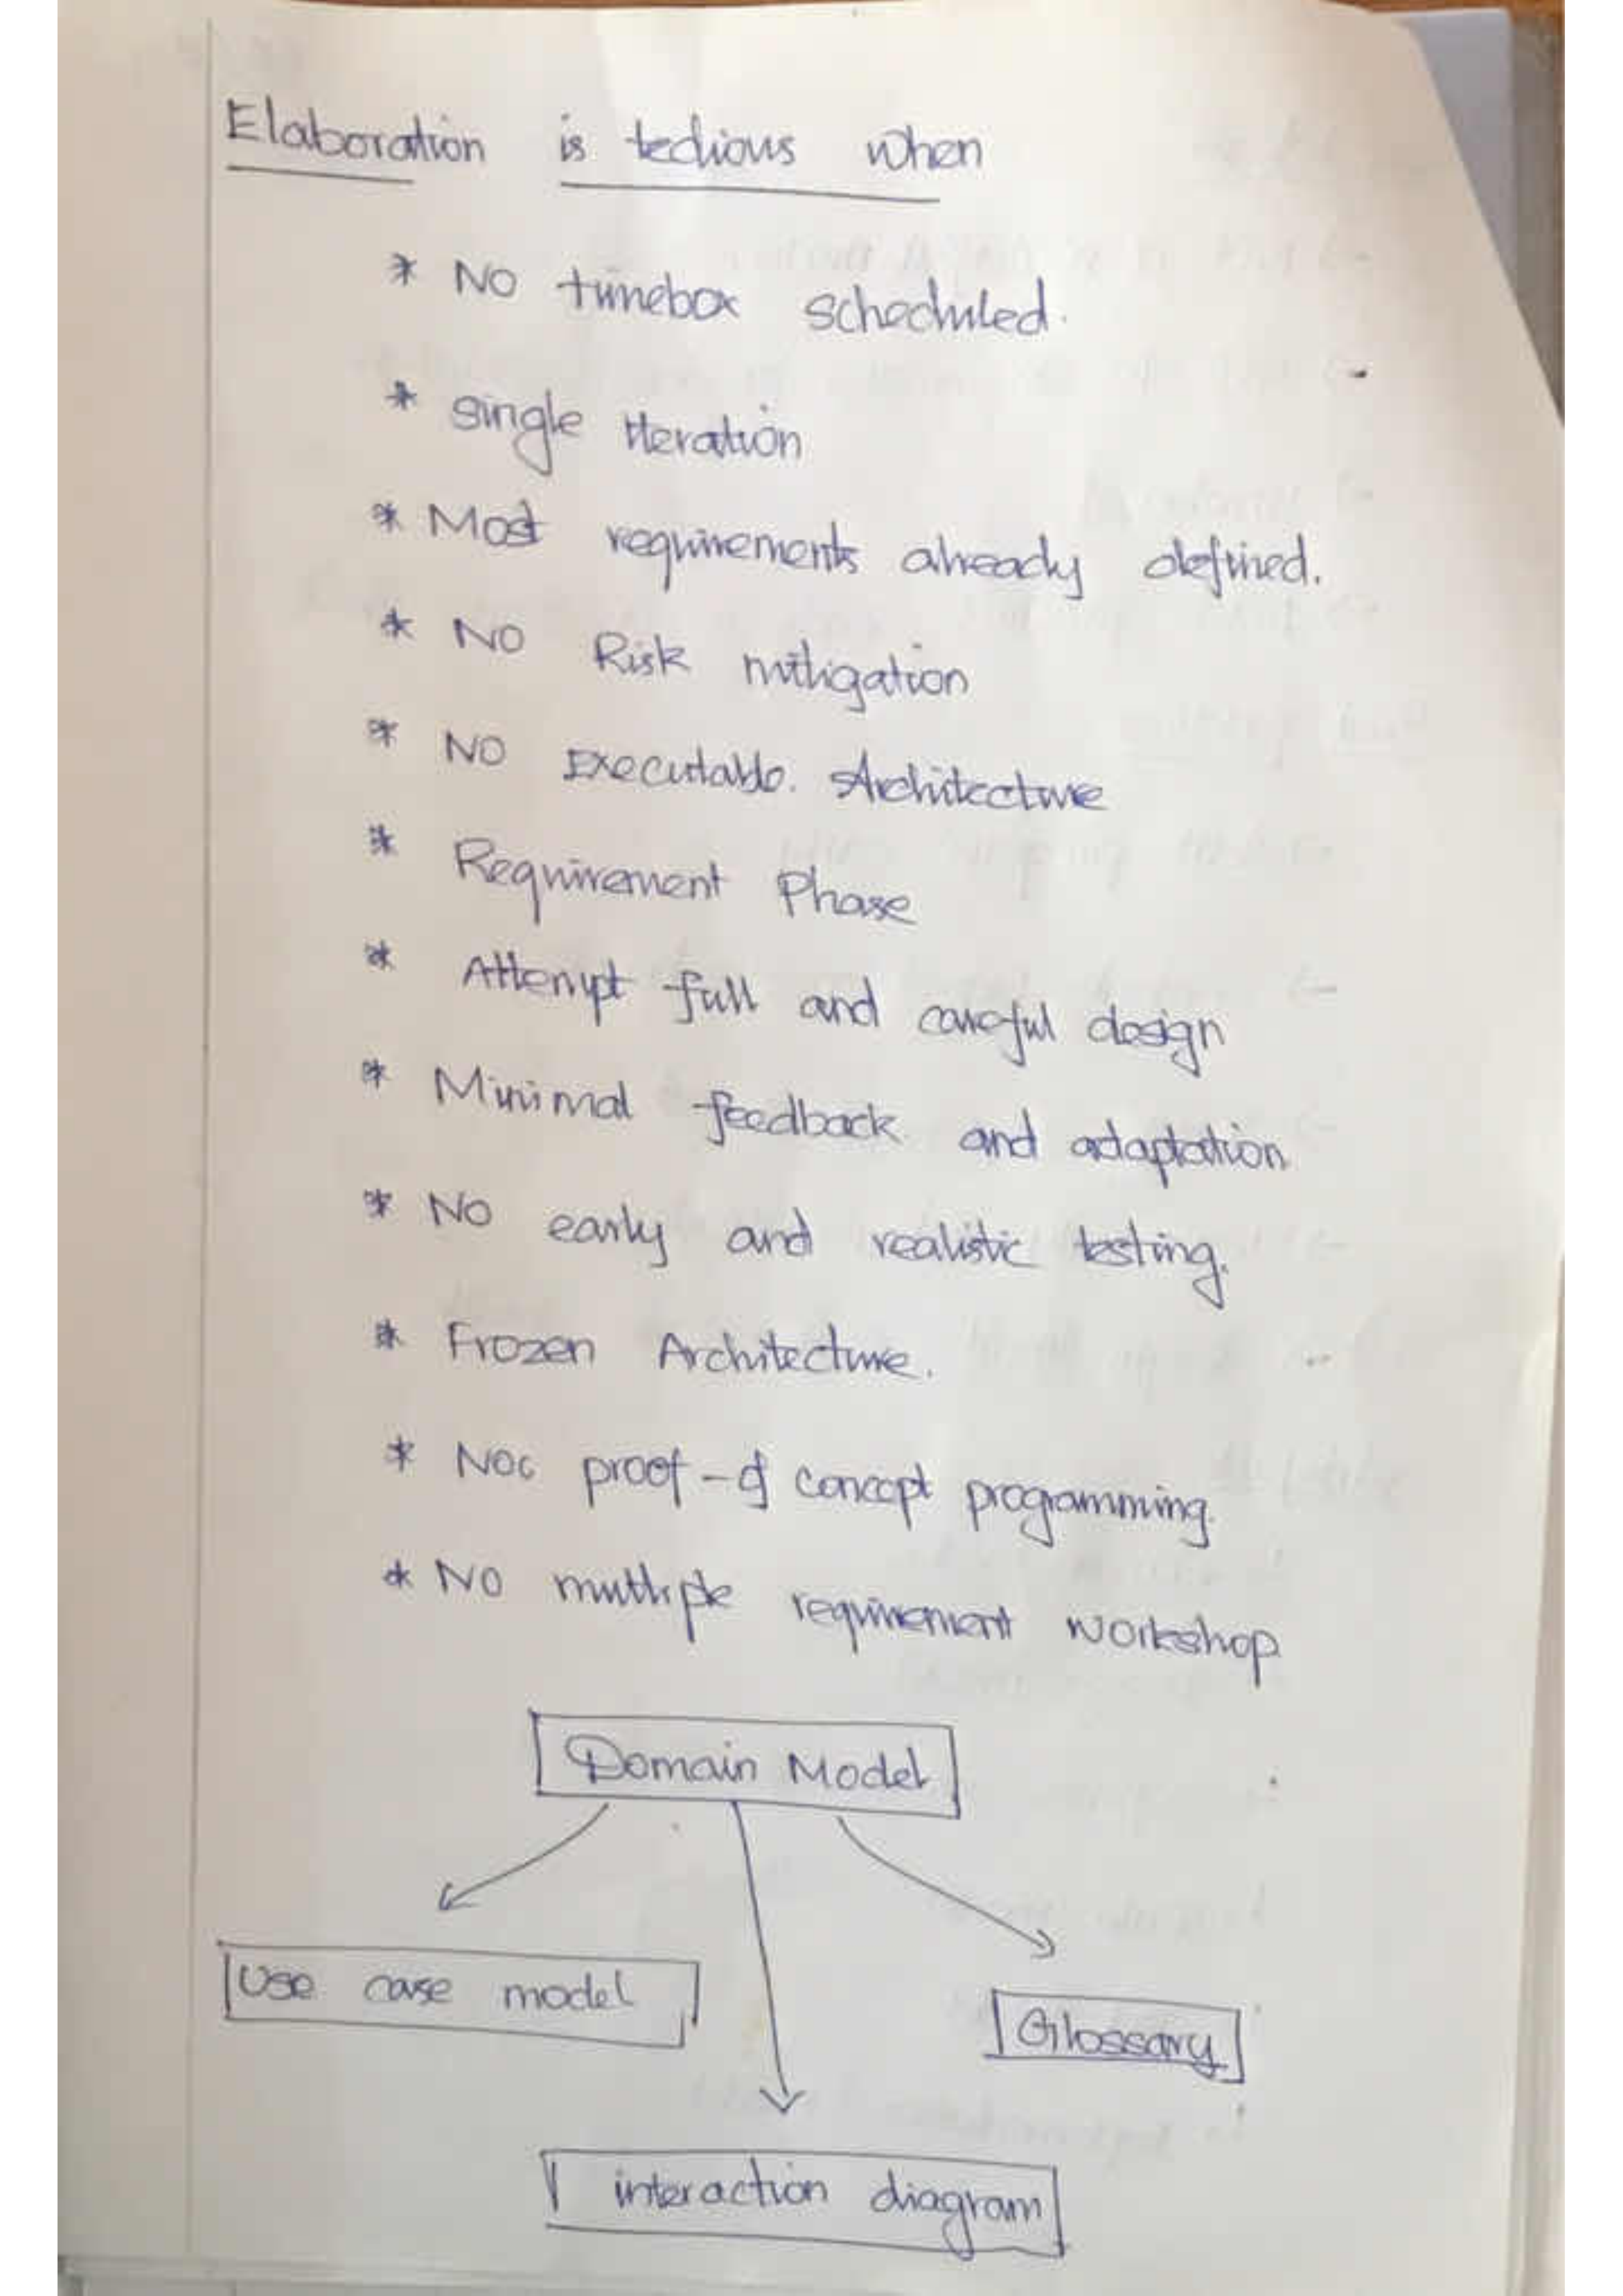 Elaboration is tedious when
* NO timebox scheduled.
* single iteration
* Most requirements already defined.
* NO Risk mitigation
* NO Executable. Architecture
* Requirement Phase
* Attempt full and careful design
* Minimal feedback and adaptation
* No early and realistic testing.
* Frozen Architecture.
* Noc proof-of concept programming.
* NO multiple requirement workshop
Domain Model
Use case model
Glossary
interaction diagram